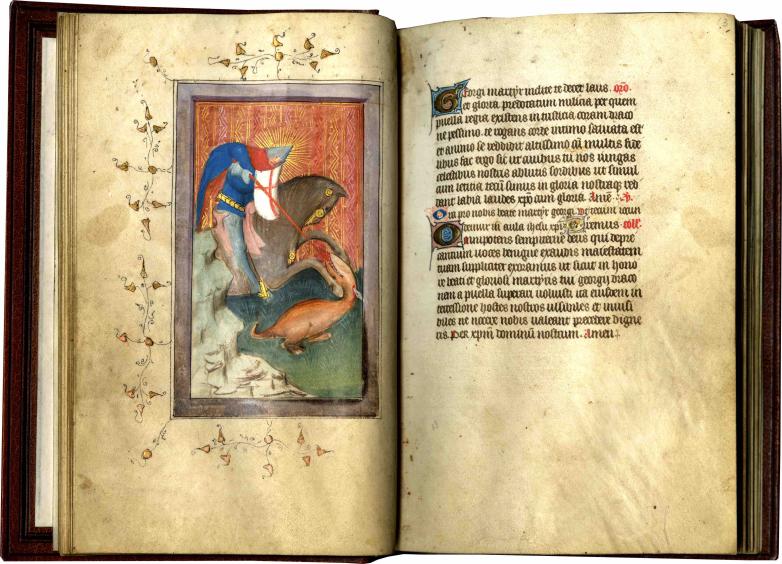 Georgi martyr inclite te decet laus. oro
et gloria predotatum milicia per quem
puella regia existens in tristicia coram draco
ne pessimo. te rogans corde intimo salvata est
et animo se reddidit altissimo cum multis fide
libus fac ergo sic ut civibus tu nos iungas
celestibus nostris ablutis sordibus ut simul
cum leticia tecum simus in gloria nostraque red
dant labia laudes xpo cum gloria. Amen. V.
Ora pro nobis beate martyr georgi
Oremus. coll.
Omnipotens sempiterne deus qui depre
cantium voces benigne exaudis maiestatem
tuam suppliciter exoramus ut sicut in hono
re beati et gloriosi martyris tui georgii draco
nem a puella superari voluisti ita eiusdem in
tercessione hostes nostros visibiles et invisi
biles ne nocere nobis valeant precedere digne
ris. Per xpm dominum nostrum. Amen.